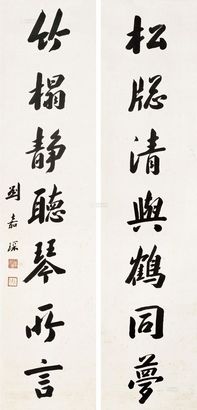 松牕清與鶴同夢
竹榻静聽琴所言
劉嘉琛